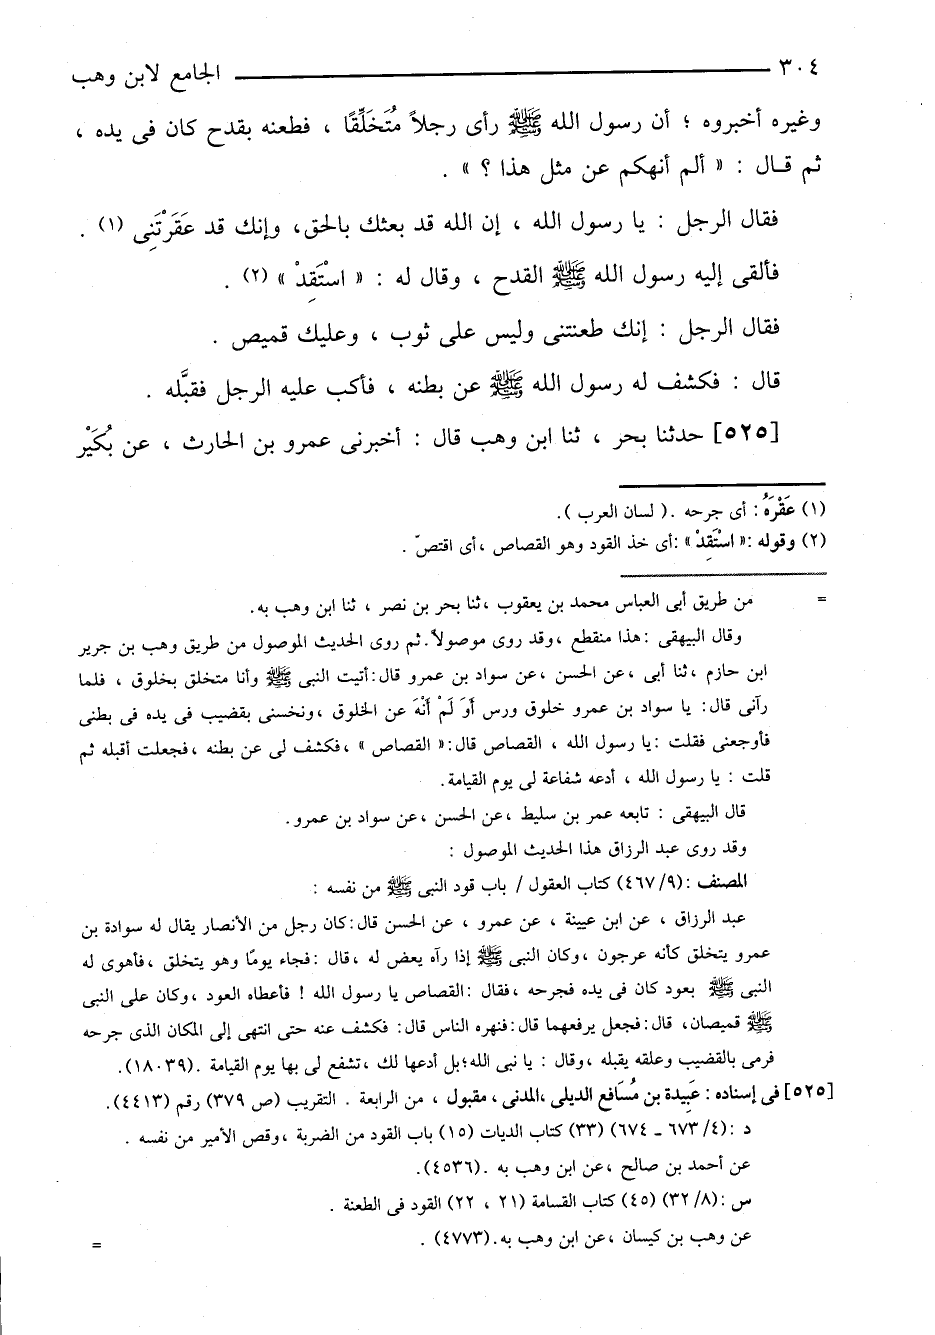 ٣٠٤ الجامع لابن وهب
وغيره أخبروه ؛ أن رسول الله ﷺ رأى رجلاً مُتَخَلِّقًا ، فطعنه بقدح كان فى يده ،
ثم قـال : « ألم أنهكم عن مثل هذا ؟ » .
فقال الرجل : يا رسول الله ، إن الله قد بعثك بالحق، وإنك قد عَقَرْتَنِى (١) .
فألقى إليه رسول الله ﷺ القدح ، وقال له : « اسْتَقِدْ » (٢) .
فقال الرجل : إنك طعنتنى وليس على ثوب ، وعليك قميص .
قال : فكشف له رسول الله ﷺ عن بطنه ، فأكب عليه الرجل فقبَّله .
[٥٢٥] حدثنا بحر ، ثنا ابن وهب قال : أخبرنى عمرو بن الحارث ، عن بُكَيْر
(١) عَقْرَهُ : أى جرحه .( لسان العرب ).
(٢) وقوله :« اسْتَقِدْ » :أى خذ القود وهو القصاص ،أى اقتصّ .
= من طريق أبى العباس محمد بن يعقوب ،ثنا بحر بن نصر ، ثنا ابن وهب به.
وقال البيهقى :هذا منقطع ،وقد روى موصولاً.ثم روى الحديث الموصول من طريق وهب بن جرير
ابن حازم ،ثنا أبى ،عن الحسن ،عن سواد بن عمرو قال:أتيت النبى ﷺ وأنا متخلق بخلوق ، فلما
رآنى قال: يا سواد بن عمرو خلوق ورس أَوَ لَمْ أَنْهَ عن الخلوق ،ونخسنى بقضيب فى يده فى بطنى
فأوجعنى فقلت :يا رسول الله ، القصاص قال:« القصاص » ،فكشف لى عن بطنه ،فجعلت أقبله ثم
قلت : يا رسول الله ، أدعه شفاعة لى يوم القيامة.
قال البيهقى : تابعه عمر بن سليط ،عن الحسن ،عن سواد بن عمرو.
وقد روى عبد الرزاق هذا الحديث الموصول :
المصنف :(٤٦٧/٩) كتاب العقول / باب قود النبى ﷺ من نفسه :
عبد الرزاق ، عن ابن عيينة ، عن عمرو ، عن الحسن قال:كان رجل من الأنصار يقال له سوادة بن
عمرو يتخلق كأنه عرجون ،وكان النبى ﷺ إذا رآه يعض له ،قال :فجاء يومًا وهو يتخلق ،فأهوى له
النبى ﷺ بعود كان فى يده فجرحه ،فقال :القصاص يا رسول الله ! فأعطاه العود ،وكان على النبى
ﷺ قميصان، قال:فجعل يرفعهما قال:فنهره الناس قال: فكشف عنه حتى انتهى إلى المكان الذى جرحه
فرمى بالقضيب وعلقه يقبله ،وقال : يا نبى الله؛بل أدعها لك ،تشفع لى بها يوم القيامة .(١٨٠٣٩).
[٥٢٥] فى إسناده : عَبِيدة بن مُسَافع الديلى ،المدنى ، مقبول ، من الرابعة . التقريب (ص ٣٧٩) رقم (٤٤١٣).
د :(٤/ ٦٧٣ ـ ٦٧٤) (٣٣) كتاب الديات (١٥) باب القود من الضربة ،وقص الأمير من نفسه .
عن أحمد بن صالح ،عن ابن وهب به .(٤٥٣٦).
س :(٨/ ٣٢) (٤٥) كتاب القسامة (٢١ ، ٢٢) القود فى الطعنة .
عن وهب بن كيسان ،عن ابن وهب به.(٤٧٧٣) . =